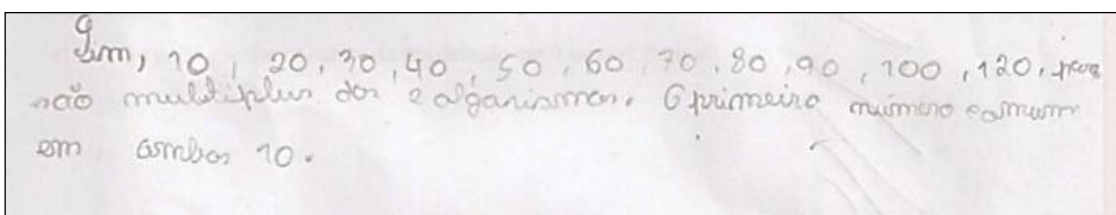 Sim, 10, 20, 30, 40, 50, 60, 70, 80, 90, 100, 120, pois
são multiplus dos 2 alganismos. O primeiro número comum
em ambos 10.